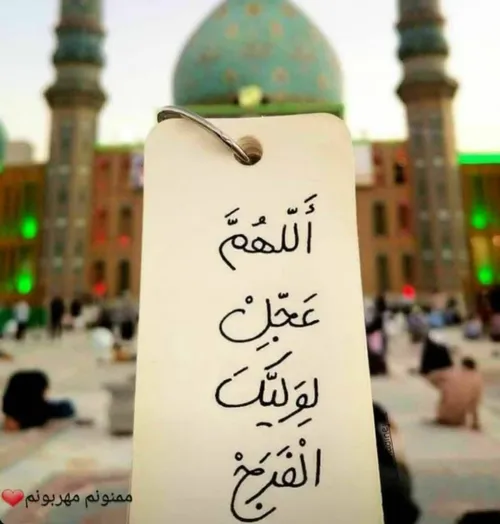 أَللّهُمَّ
عَجِّلْ
لِوَلِیِّکَ
الْفَرَجْ
ممنونم مهربونم❤